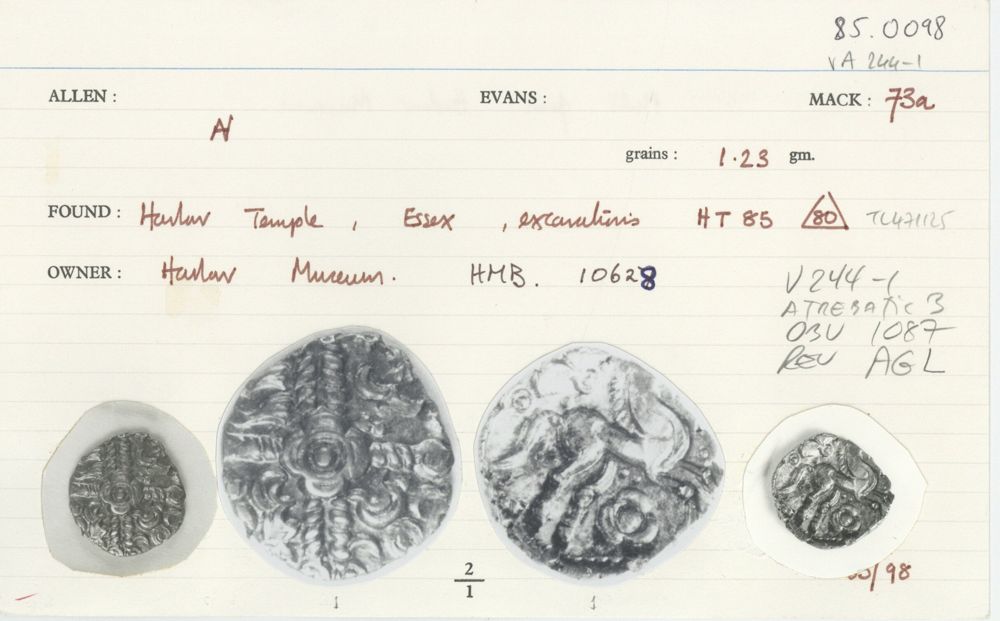 85.0098
VA 244-1
ALLEN : EVANS : MACK : 73a
N
grains : 1.23 gm.
FOUND : Harlow Temple , Essex , excavations HT 85 80 TL471125
OWNER : Harlow Museum. HMB. 10628
V244-1
ATREBATIC 3
OBV 1087
REV AGL
2
1
/98
1 1